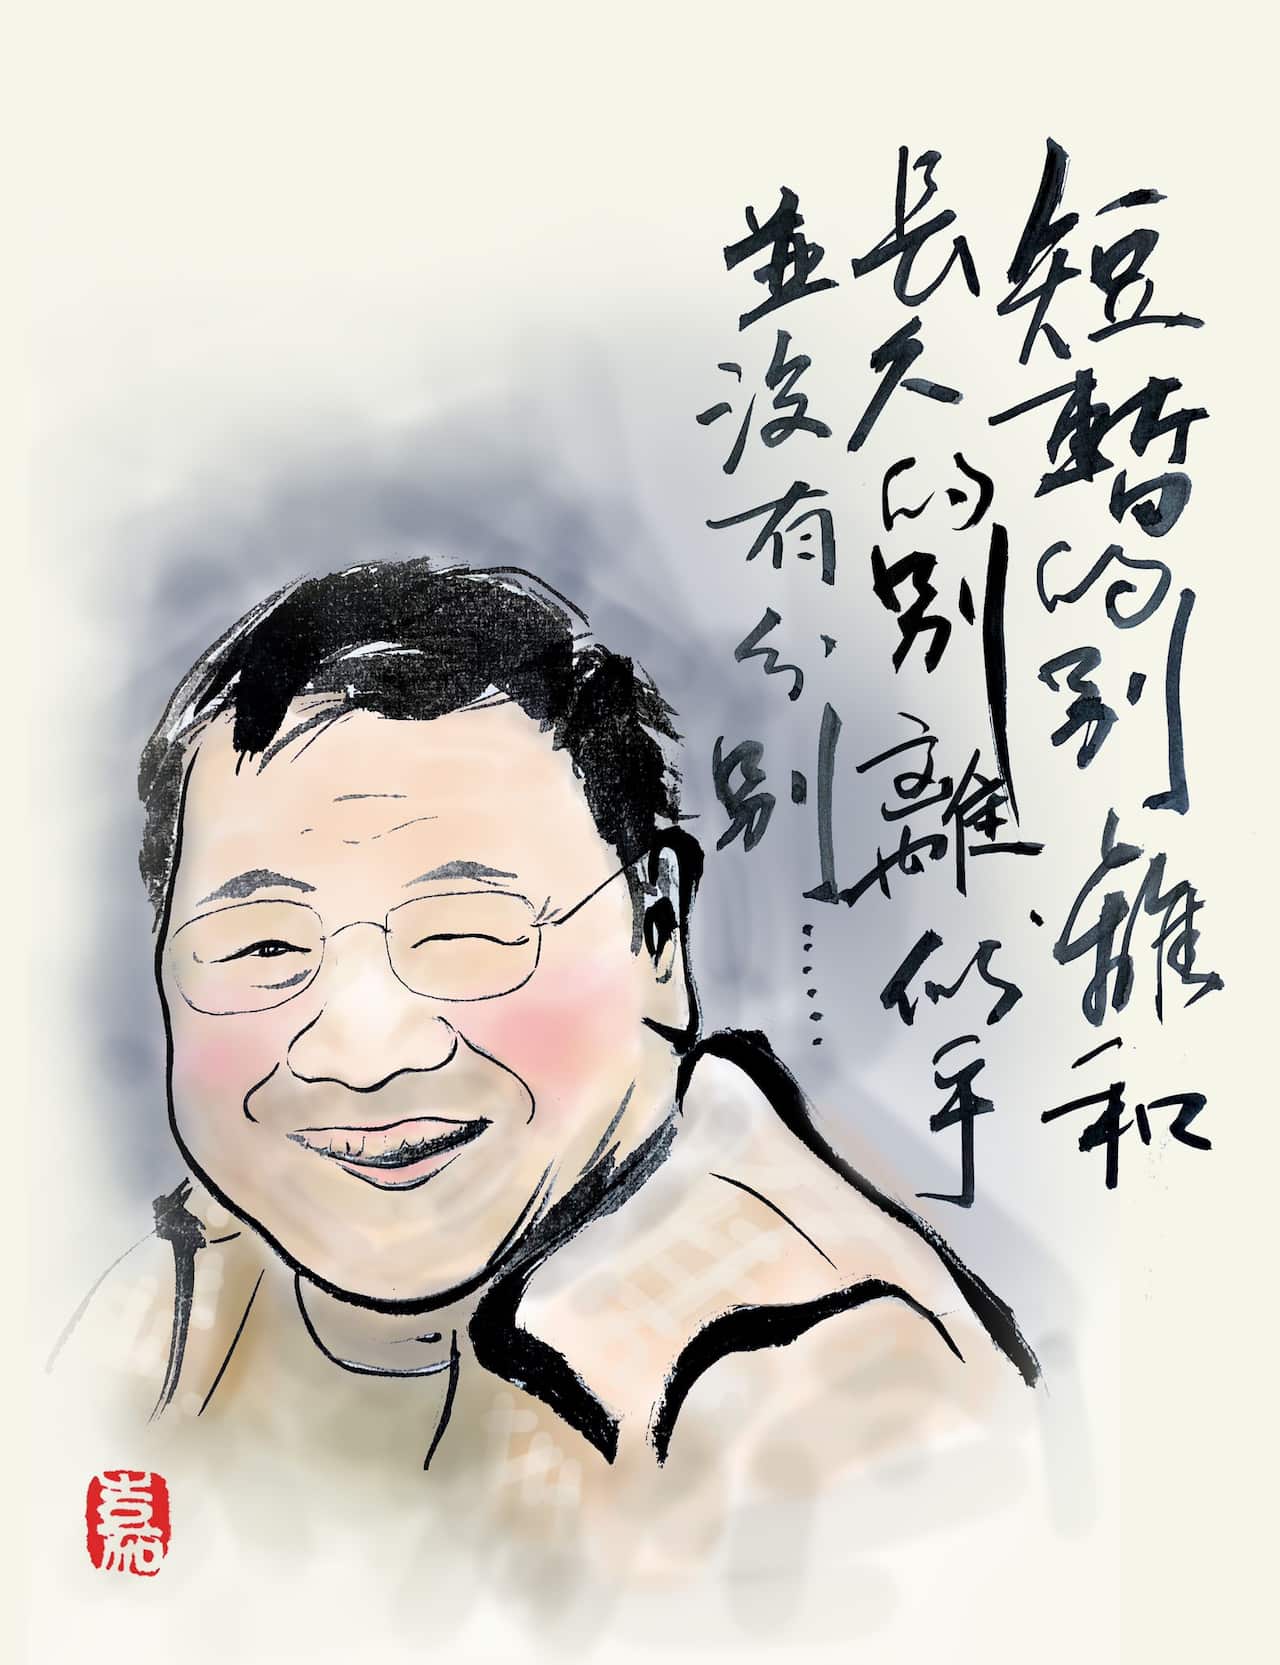 短暫的別離和
長久的別離似乎
並沒有分別……
嘉